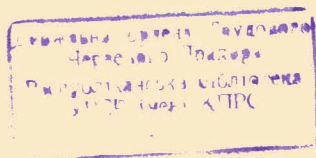 Державна ордена Трудового
Червоного Прапора
Республіканська бібліотека
УРСР імені КПРС